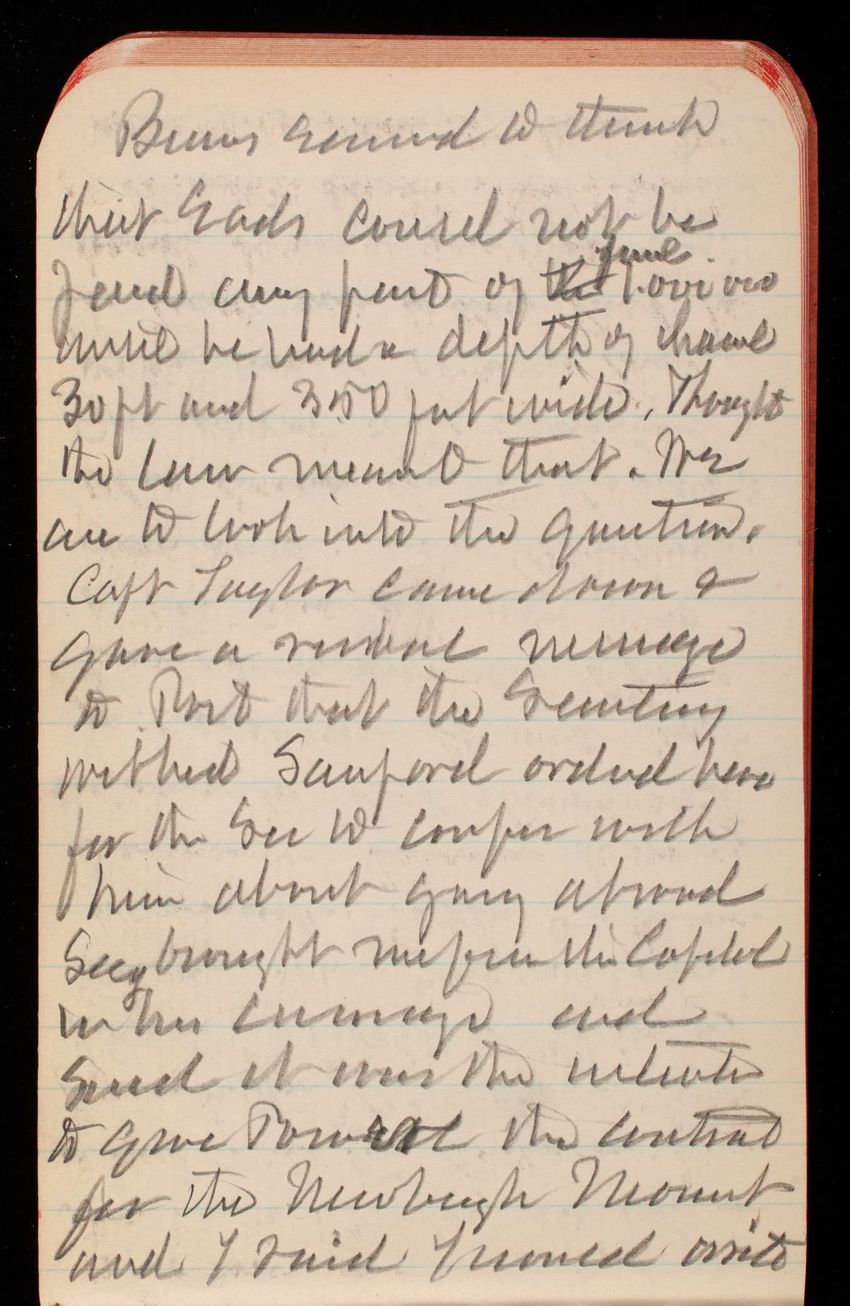 Burns seemed to think
that Eads could not be
paid any part of the final 1.000 000
until he had a depth of channel
30 ft and 350 feet wide. Thought
the law meant that. We
are to look into the question.
Capt Taylor came down &
gave a verbal message
to Post that the Secretary
wished Sanford ordered here
for the Sec to confer with
him about going abroad
Secy brought me from the Capitol
in his carriage and
said it was the intention
to give Powell the contract
for the Newburgh Monut
and I said I would write